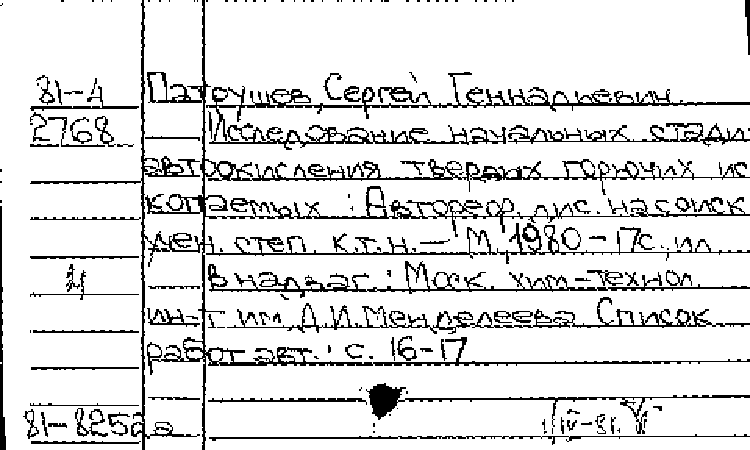 81-4 Патрушев, Сергей Геннадиевич.
2768 Исследование начальных стади
автоокисления твердых горючих ис
копаемых : Автореф. дис. на соиск
учен. степ. к.т.н. - М, 1980 - 17с., ил.
4 В надзаг.: Моск. хим-технол.
ин-т им. Д.И. Менделеева Список
работ авт.: с. 16-17
81-8252а IV-81.